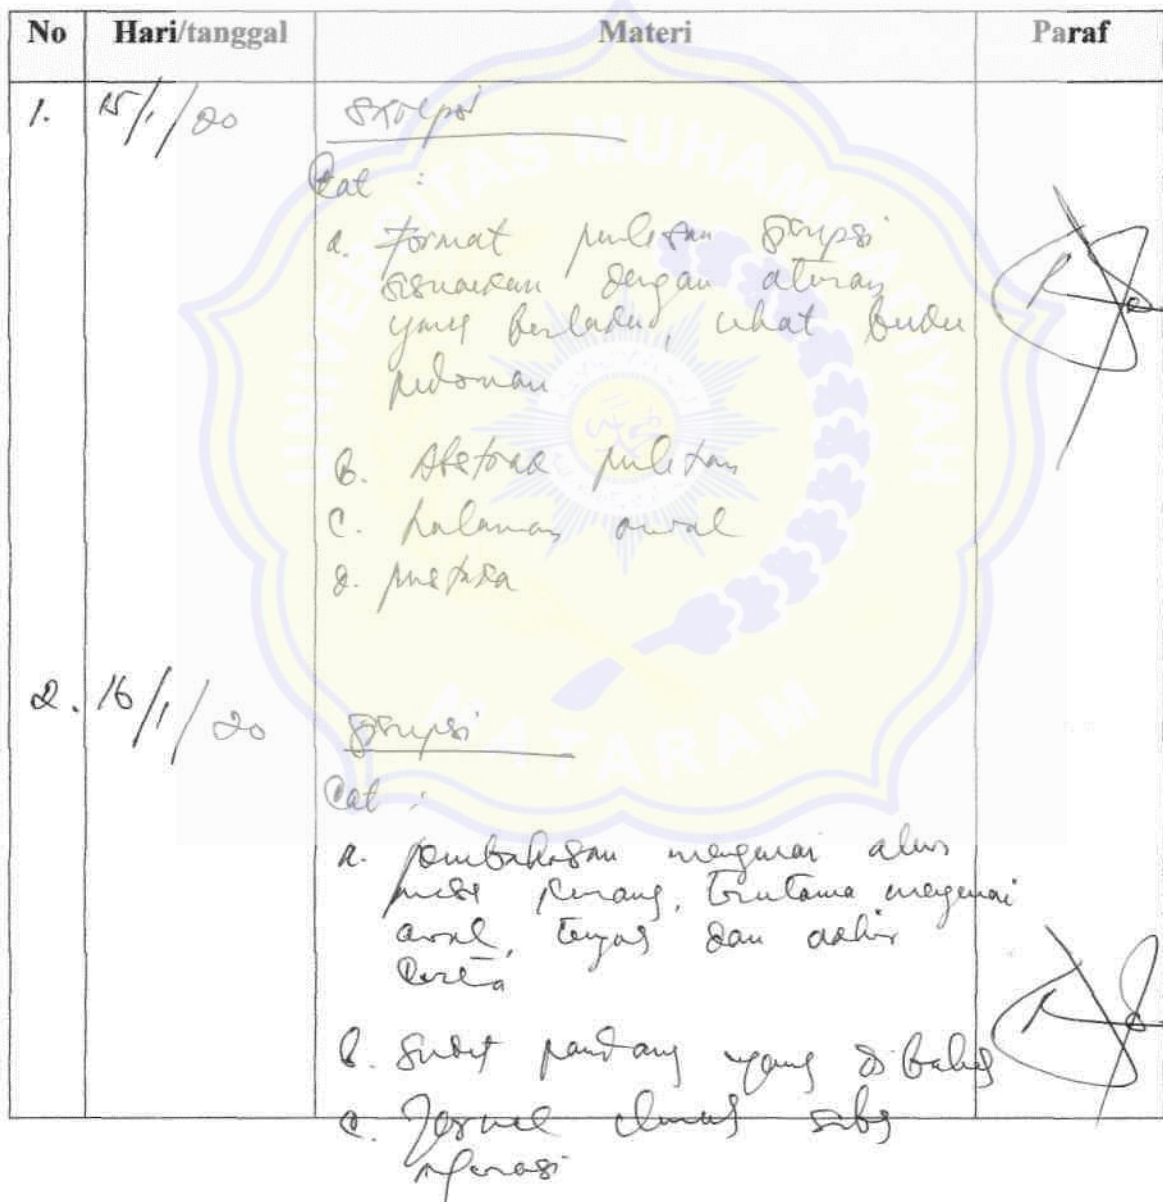 No Hari/tanggal Materi Paraf
1. 15/1/20 Skripsi
Cat :
a. Format penulisan skripsi
disesuaikan dengan aturan
yang berlaku, lihat buku
pedoman
b. Abstrak penulisan
c. halaman awal
d. pustaka
2. 16/1/20 Skripsi
Cat :
a. pembahasan mengenai alur
masih kurang, terutama mengenai
awal, tengah dan akhir
cerita
b. sudut pandang yang dibahas
c. Jurnal
referensi
UNIVERSITAS MUHAMMADIYAH
MATARAM